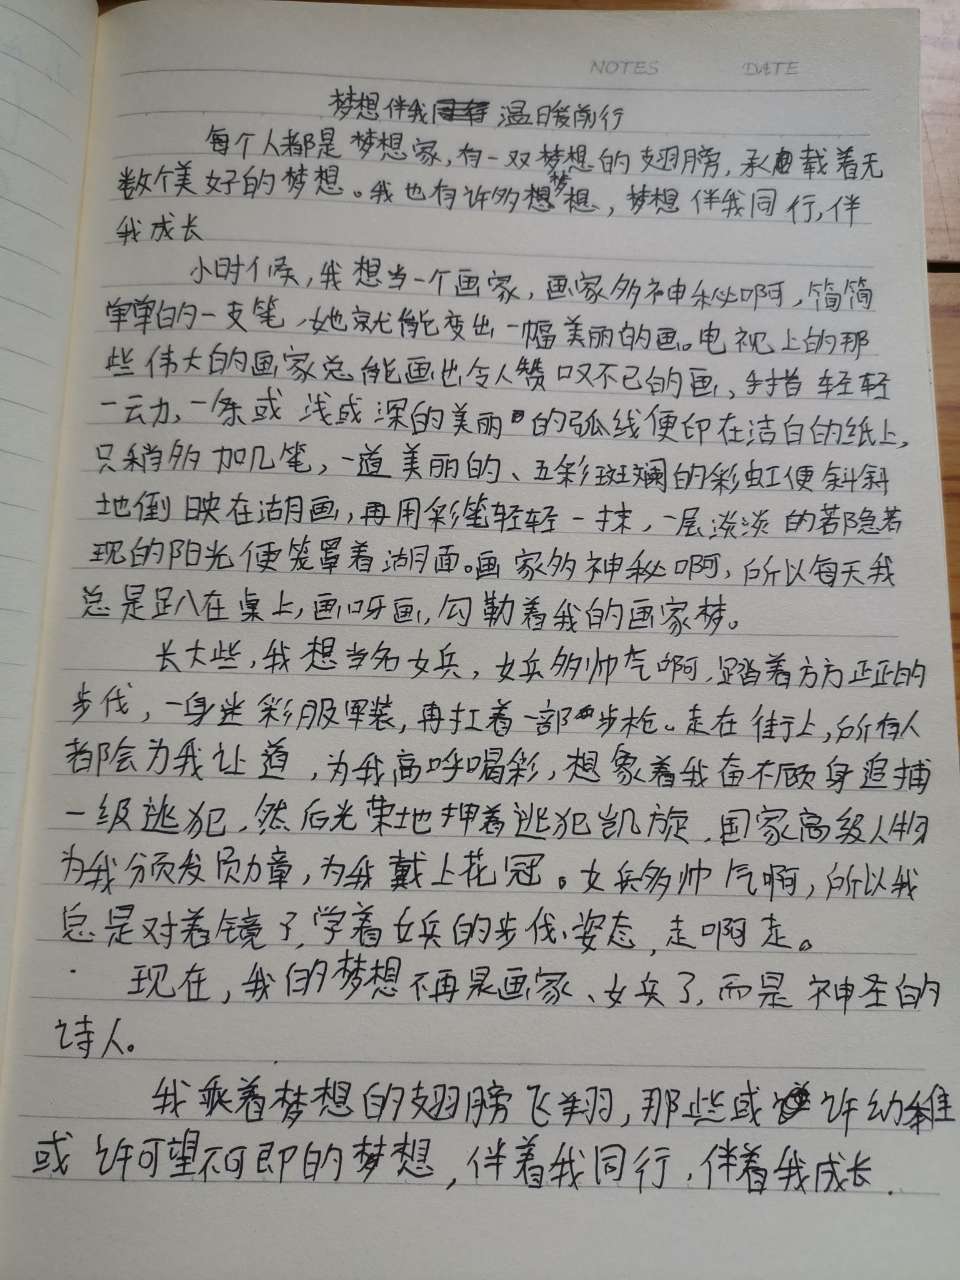 NOTES DATE
梦想伴我温暖前行
每个人都是梦想家,有一双梦想的翅膀,承载着无
数个美好的梦想。我也有许多梦想,梦想伴我同行,伴
我成长
小时候,我想当一个画家,画家多神秘啊,简简
单单的一支笔,她就能变出一幅美丽的画。电视上的那
些伟大的画家总能画出令人赞叹不已的画,手指轻轻
一云力,一条或浅或深的美丽的弧线便印在洁白的纸上,
只稍多加几笔,一道美丽的、五彩斑斓的彩虹便斜斜
地倒映在湖画,再用彩笔轻轻一抹,一层淡淡的若隐若
现的阳光便笼罩着湖面。画家多神秘啊,所以每天我
总是趴在桌上,画呀画,勾勒着我的画家梦。
长大些,我想当名女兵,女兵多帅气啊,踏着方方正正的
步伐,一身迷彩服军装,再扛着一部步枪。走在街上,所有人
都会为我让道,为我高呼喝彩,想象着我奋不顾身追捕
一级逃犯,然后光荣地押着逃犯凯旋,国家高级人物
为我颁发勋章,为我戴上花冠。女兵多帅气啊,所以我
总是对着镜子,学着女兵的步伐、姿态,走啊走。
现在,我的梦想不再是画家、女兵了,而是神圣的
诗人。
我乘着梦想的翅膀飞翔,那些或许幼稚
或许可望不可即的梦想,伴着我同行,伴着我成长.